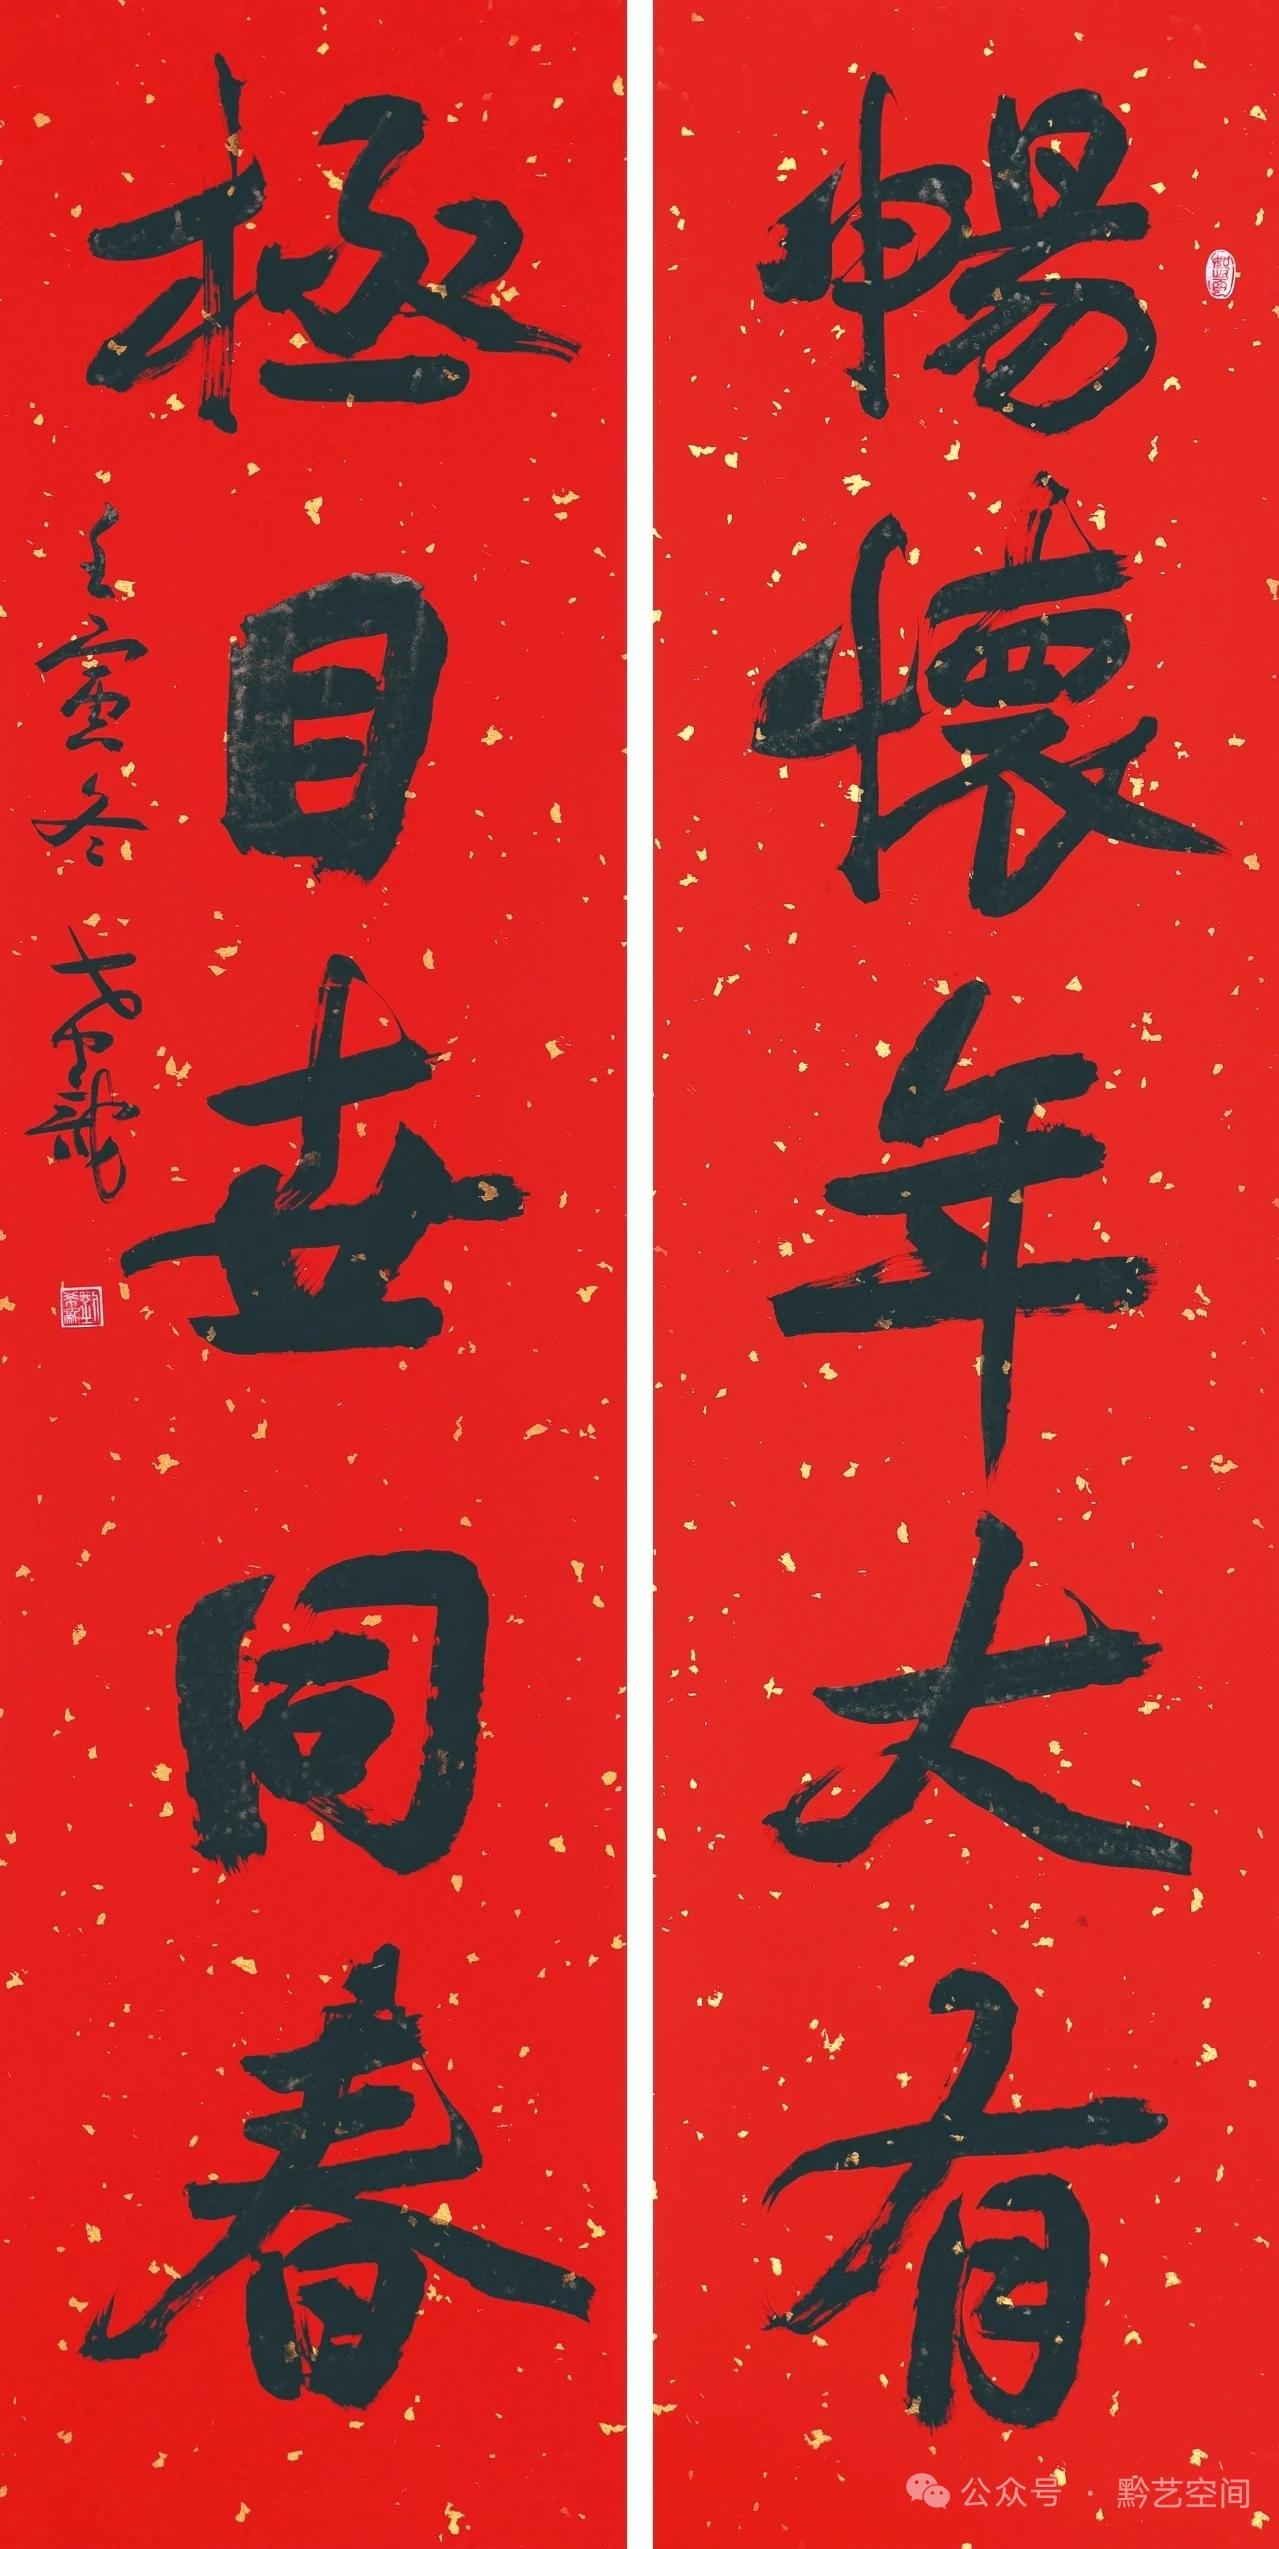 暢懷年大有
極目世同春
壬寅冬
公众号 · 黔艺空间